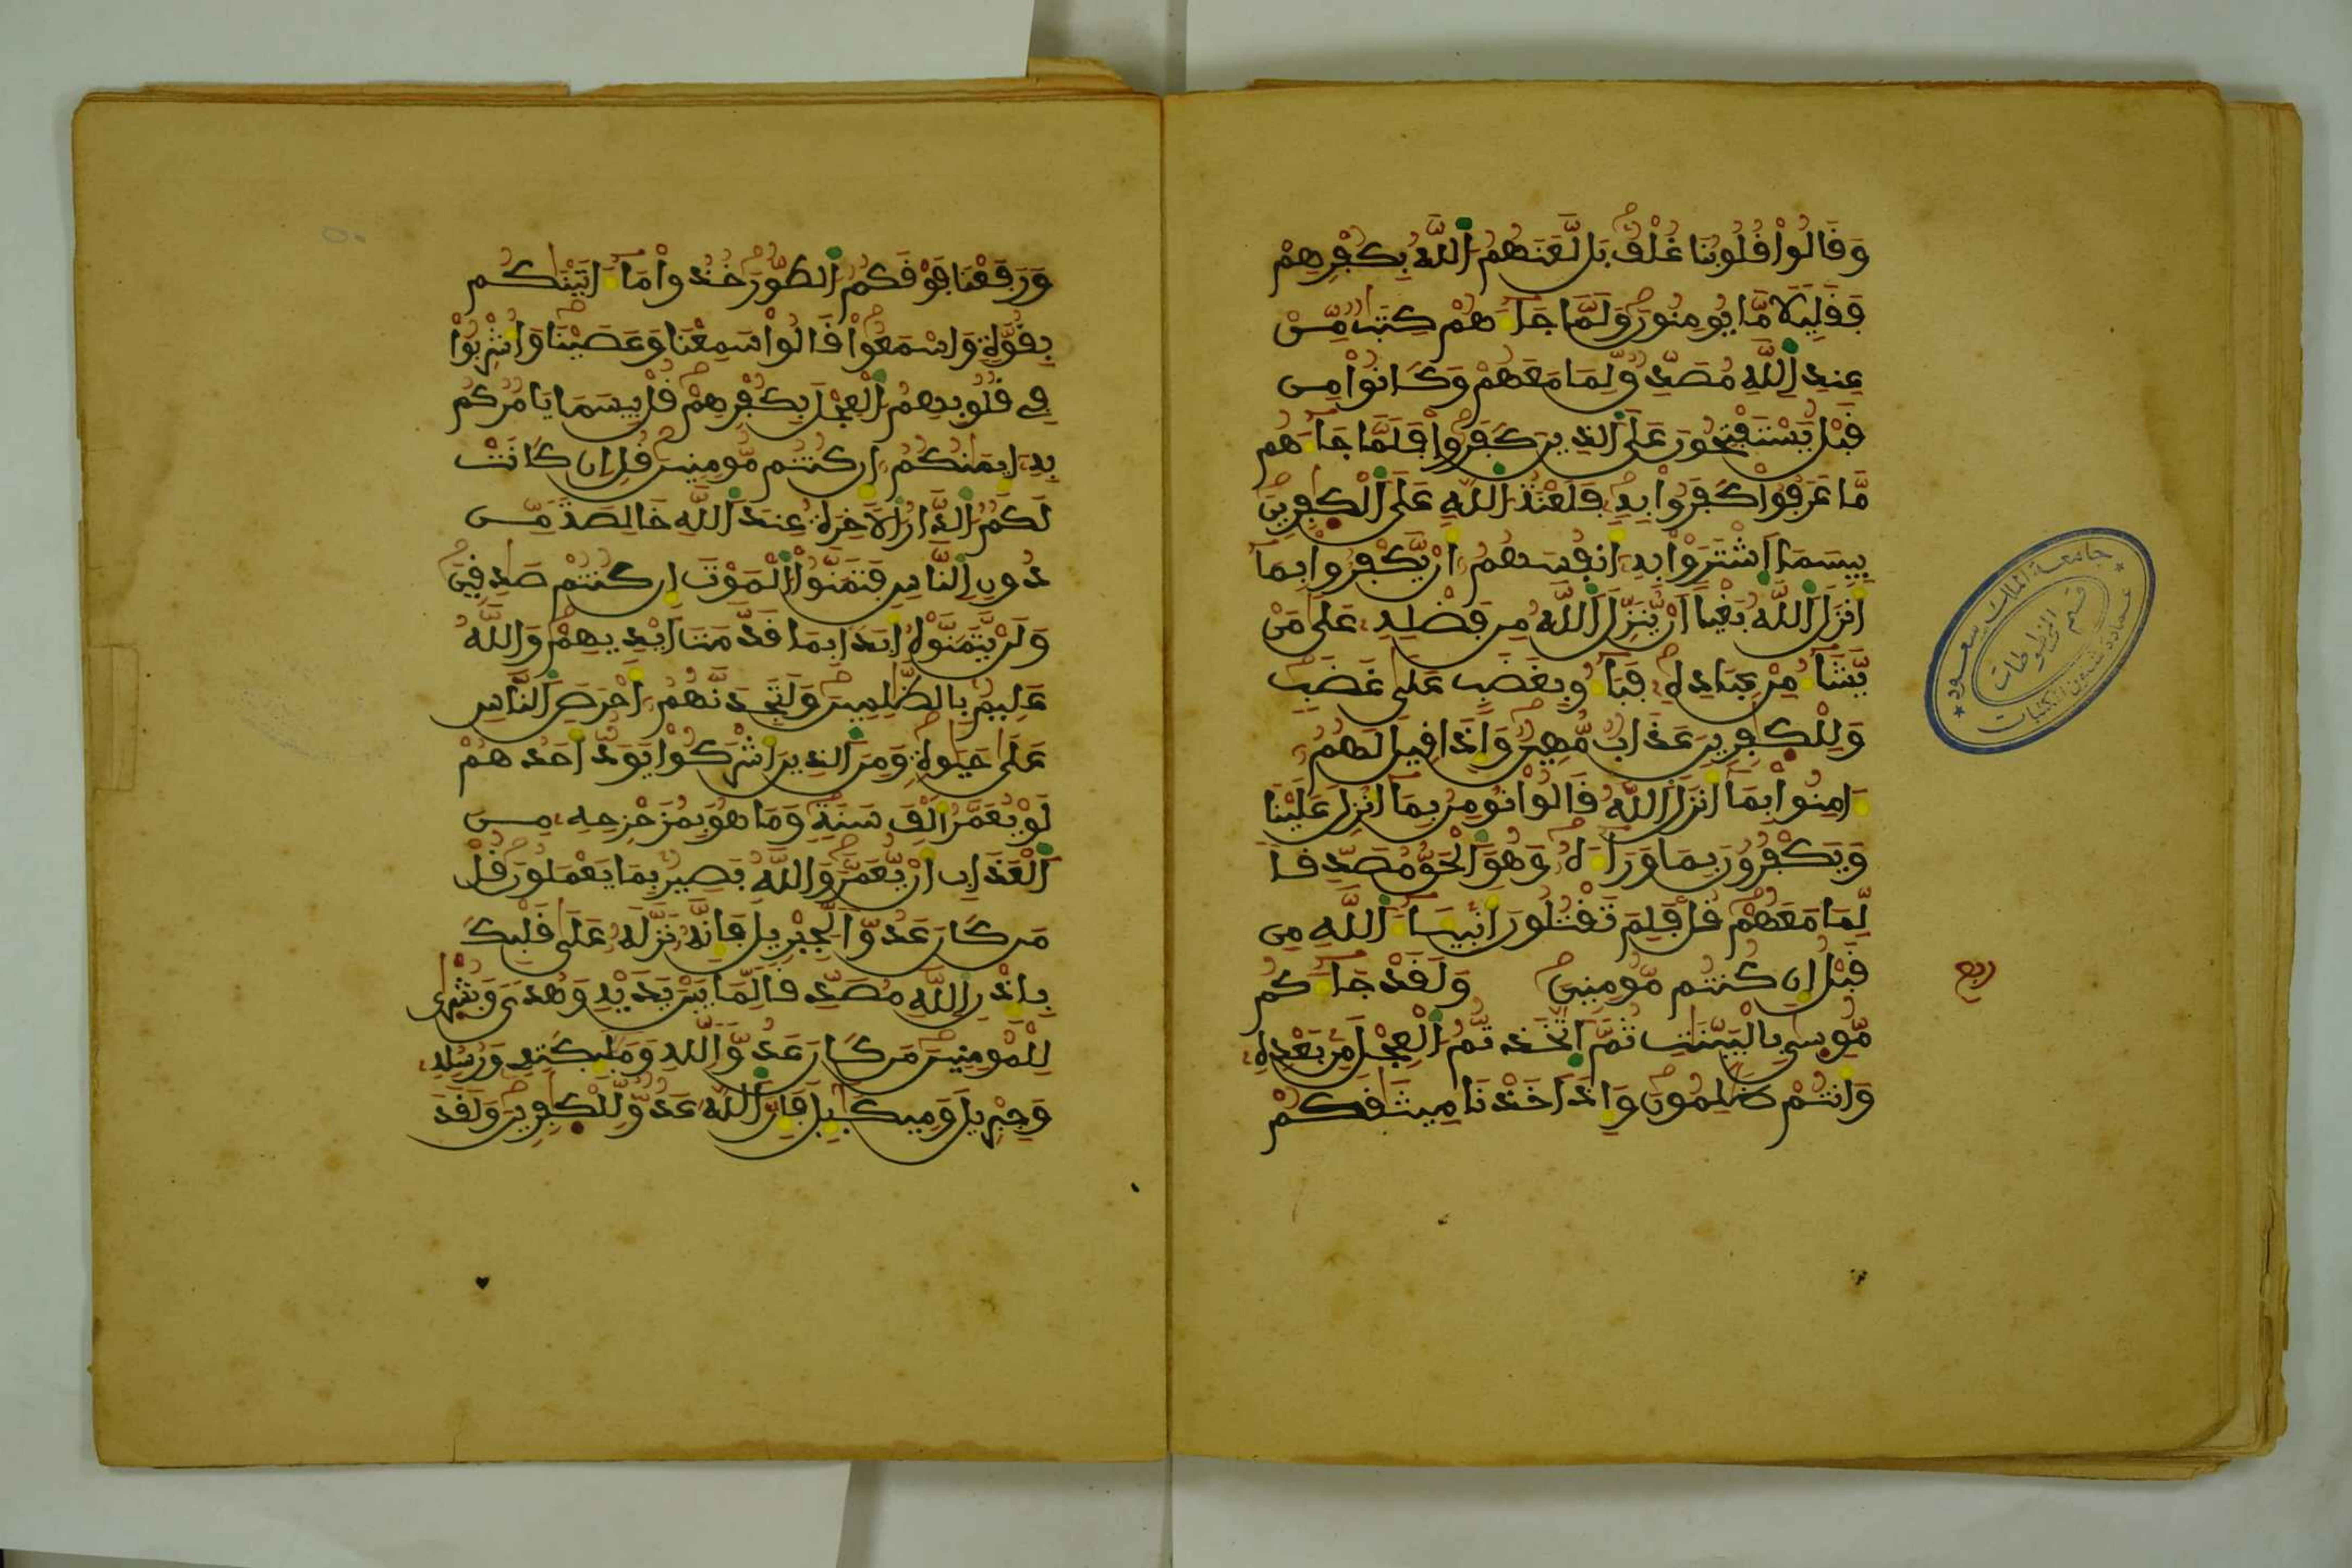 وَقَالُواْ قُلُوبُنَا غُلْفٌ بَل لَّعَنَهُمُ اُللَّهُ بِكُفْرِهِمْ
فَقَلِيلًا مَّا يُومِنُونَ وَلَمَّا جَآءَهُمْ كِتَٰبٌ مِّن
عِندِ اِللَّهِ مُصَدِّقٌ لِّمَا مَعَهُمْ وَكَانُواْ مِن
قَبْلُ يَسْتَفْتِحُونَ عَلَى اَلذِينَ كَفَرُواْ فَلَمَّا جَآءَهُم
مَّا عَرَفُواْ كَفَرُواْ بِهِ فَلَعْنَةُ اُللَّهِ عَلَى اَلْكٰفِرِينَ
بِيسَمَا اَشْتَرَوْاْ بِهِ أَنفُسَهُمُ أَنْ يَّكْفُرُواْ بِمَآ
أَنزَلَ اَللَّهُ بَغْياً أَنْ يُّنَزِّلَ اَللَّهُ مِن فَضْلِهِ عَلَىٰ مَنْ
يَّشَآءُ مِنْ عِبَادِهِ فَبَآءُو بِغَضَبٍ عَلَىٰ غَضَبٍ
وَلِلْكٰفِرِينَ عَذَابٌ مُّهِينٌ وَإِذَا قِيلَ لَهُمُ
ءَامِنُواْ بِمَآ أَنزَلَ اَللَّهُ قَالُواْ نُومِنُ بِمَآ أُنزِلَ عَلَيْنَا
وَيَكْفُرُونَ بِمَا وَرَآءَهُ وَهُوَ اَلْحَقُّ مُصَدِّقاً
لِّمَا مَعَهُمْ قُلْ فَلِمَ تَقْتُلُونَ أَنۢبِيَآءَ اَللَّهِ مِن
قَبْلُ إِن كُنتُم مُّومِنِينَ وَلَقَدْ جَآءَكُم
ربع
مُّوسَىٰ بِالْبَيِّنَٰتِ ثُمَّ اَتَّخَذتُّمُ اُلْعِجْلَ مِنۢ بَعْدِهِ
وَأَنتُمْ ظَٰلِمُونَ وَإِذَ اَخَذْنَا مِيثَٰقَكُمْ
جامعة الملك سعود
قسم المخطوطات
عمادة شئون المكتبات
وَرَفَعْنَا فَوْقَكُمُ اُلطُّورَ خُذُواْ مَآ ءَاتَيْنَٰكُم
بِقُوَّةٍ وَاسْمَعُواْ قَالُواْ سَمِعْنَا وَعَصَيْنَا وَأُشْرِبُواْ
فِي قُلُوبِهِمُ اُلْعِجْلَ بِكُفْرِهِمْ قُلْ بِيسَمَا يَامُرُكُم
بِهِ إِيمَٰنُكُمُ إِن كُنتُم مُّومِنِينَ قُلِ إِن كَانَتْ
لَكُمُ اُلدَّارُ اُلَاخِرَةُ عِندَ اَللَّهِ خَالِصَةً مِّن
دُونِ اِلنَّاسِ فَتَمَنَّوُاْ اُلْمَوْتَ إِن كُنتُمْ صَٰدِقِينَ
وَلَنْ يَّتَمَنَّوْهُ أَبَدًا بِمَا قَدَّمَتَ اَيْدِيهِمْ وَاللَّهُ
عَلِيمٌۢ بِالظَّٰلِمِينَ وَلَتَجِدَنَّهُمُ أَحْرَصَ اَلنَّاسِ
عَلَىٰ حَيَوٰةٍ وَمِنَ اَلذِينَ أَشْرَكُواْ يَوَدُّ أَحَدُهُمْ
لَوْ يُعَمَّرُ أَلْفَ سَنَةٍ وَمَا هُوَ بِمُزَحْزِحِهِ مِنَ
اَلْعَذَابِ أَنْ يُّعَمَّرَ وَاللَّهُ بَصِيرٌۢ بِمَا يَعْمَلُونَ قُلْ
مَن كَانَ عَدُوّاً لِّجِبْرِيلَ فَإِنَّهُ نَزَّلَهُ عَلَىٰ قَلْبِكَ
بِإِذْنِ اِللَّهِ مُصَدِّقاً لِّمَا بَيْنَ يَدَيْهِ وَهُدىً وَبُشْرَىٰ
لِلْمُومِنِينَ مَن كَانَ عَدُوّاً لِّلهِ وَمَلَٰٓئِكَتِهِ وَرُسُلِهِ
وَجِبْرِيلَ وَمِيكَٰٓئِلَ فَإِنَّ اَللَّهَ عَدُوٌّ لِّلْكٰفِرِينَ وَلَقَدَ